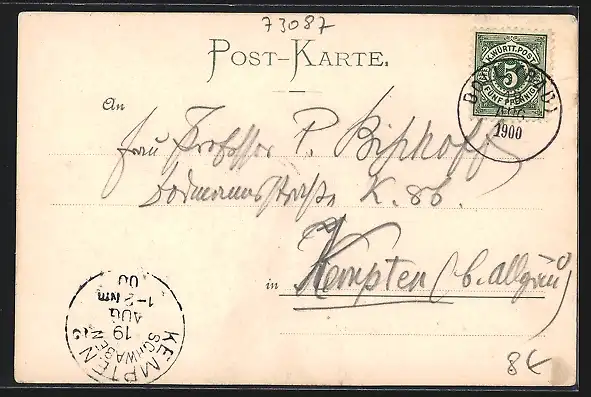 73087
POST-KARTE.
K.WÜRTT.POST
5
FÜNF PFENNIG
AUG
1900
An
Frau Professor P. Bischoff
K. 86.
in Kempten (b. Allgäu)
KEMPTEN
SCHWABEN
19
AUG
1-2 Nm
00
8€